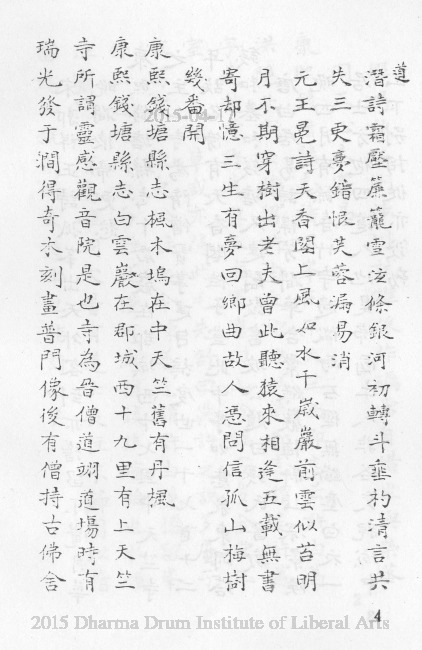 道
潛詩霜壓簾蘢雪冱條銀河初轉斗垂杓清言共
失三更夢錯恨芙蓉漏易消
元王冕詩天香閣上風如水千歲巖前雲似苔明
月不期穿樹出老夫曾此聽猿來相逢五載無書
寄却憶三生有夢回鄉曲故人憑問信孤山梅樹
幾番開
康熙錢塘縣志楓木塢在中天竺舊有丹楓
康熙錢塘縣志白雲巖在郡城西十九里有上天竺
寺所謂靈感觀音院是也寺為晉僧道翊道塲時有
瑞光發于澗得奇木刻畫普門像後有僧持古佛舍
2015-04-17
4
2015 Dharma Drum Institute of Liberal Arts